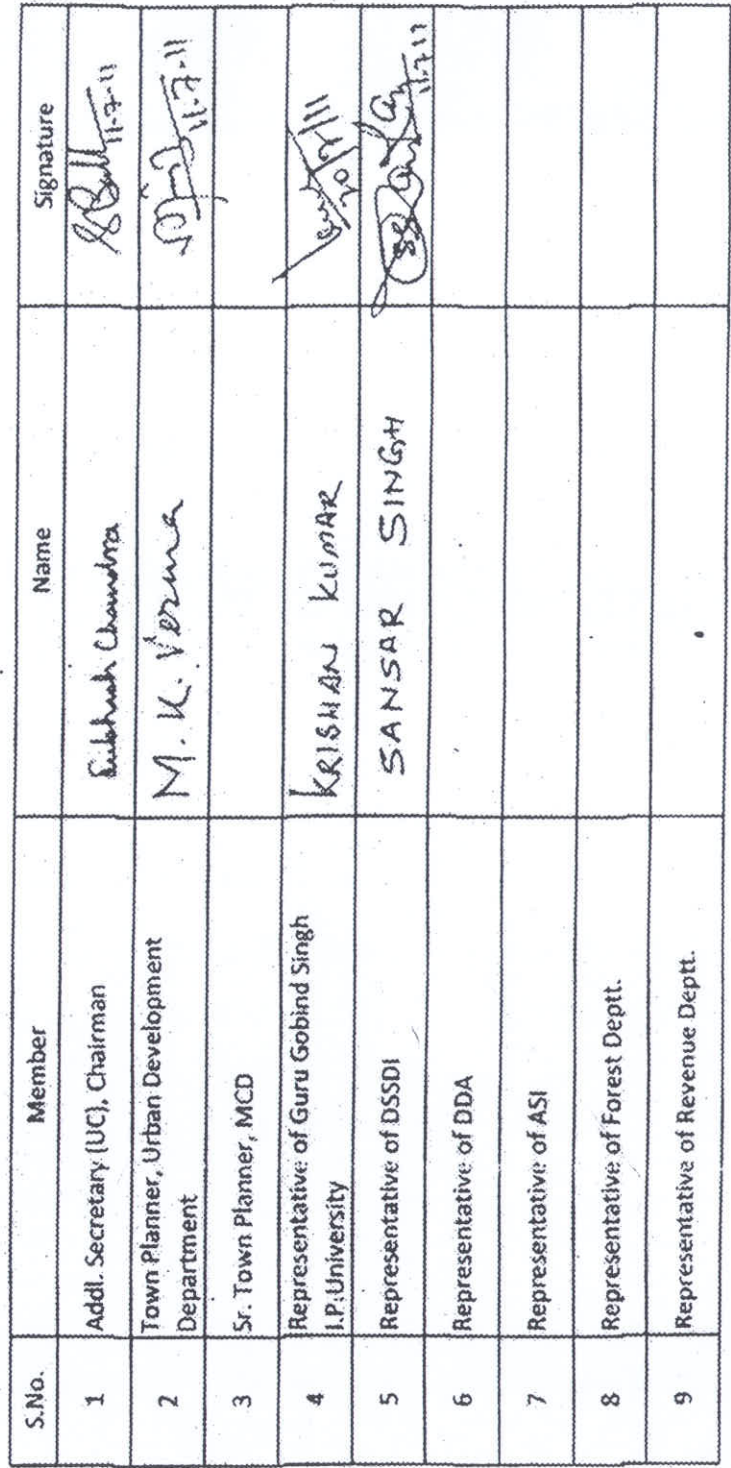 S.No. Member Name Signature
1 Addl. Secretary (UC), Chairman Subhash Chandra 11-7-11
2 Town Planner, Urban Development M. K. Verma 11-7-11
Department
3 Sr. Town Planner, MCD
4 Representative of Guru Gobind Singh KRISHAN KUMAR 20/7/11
I.P.University
5 Representative of DSSDI SANSAR SINGH 11.7.11
6 Representative of DDA
7 Representative of ASI
8 Representative of Forest Deptt.
9 Representative of Revenue Deptt.